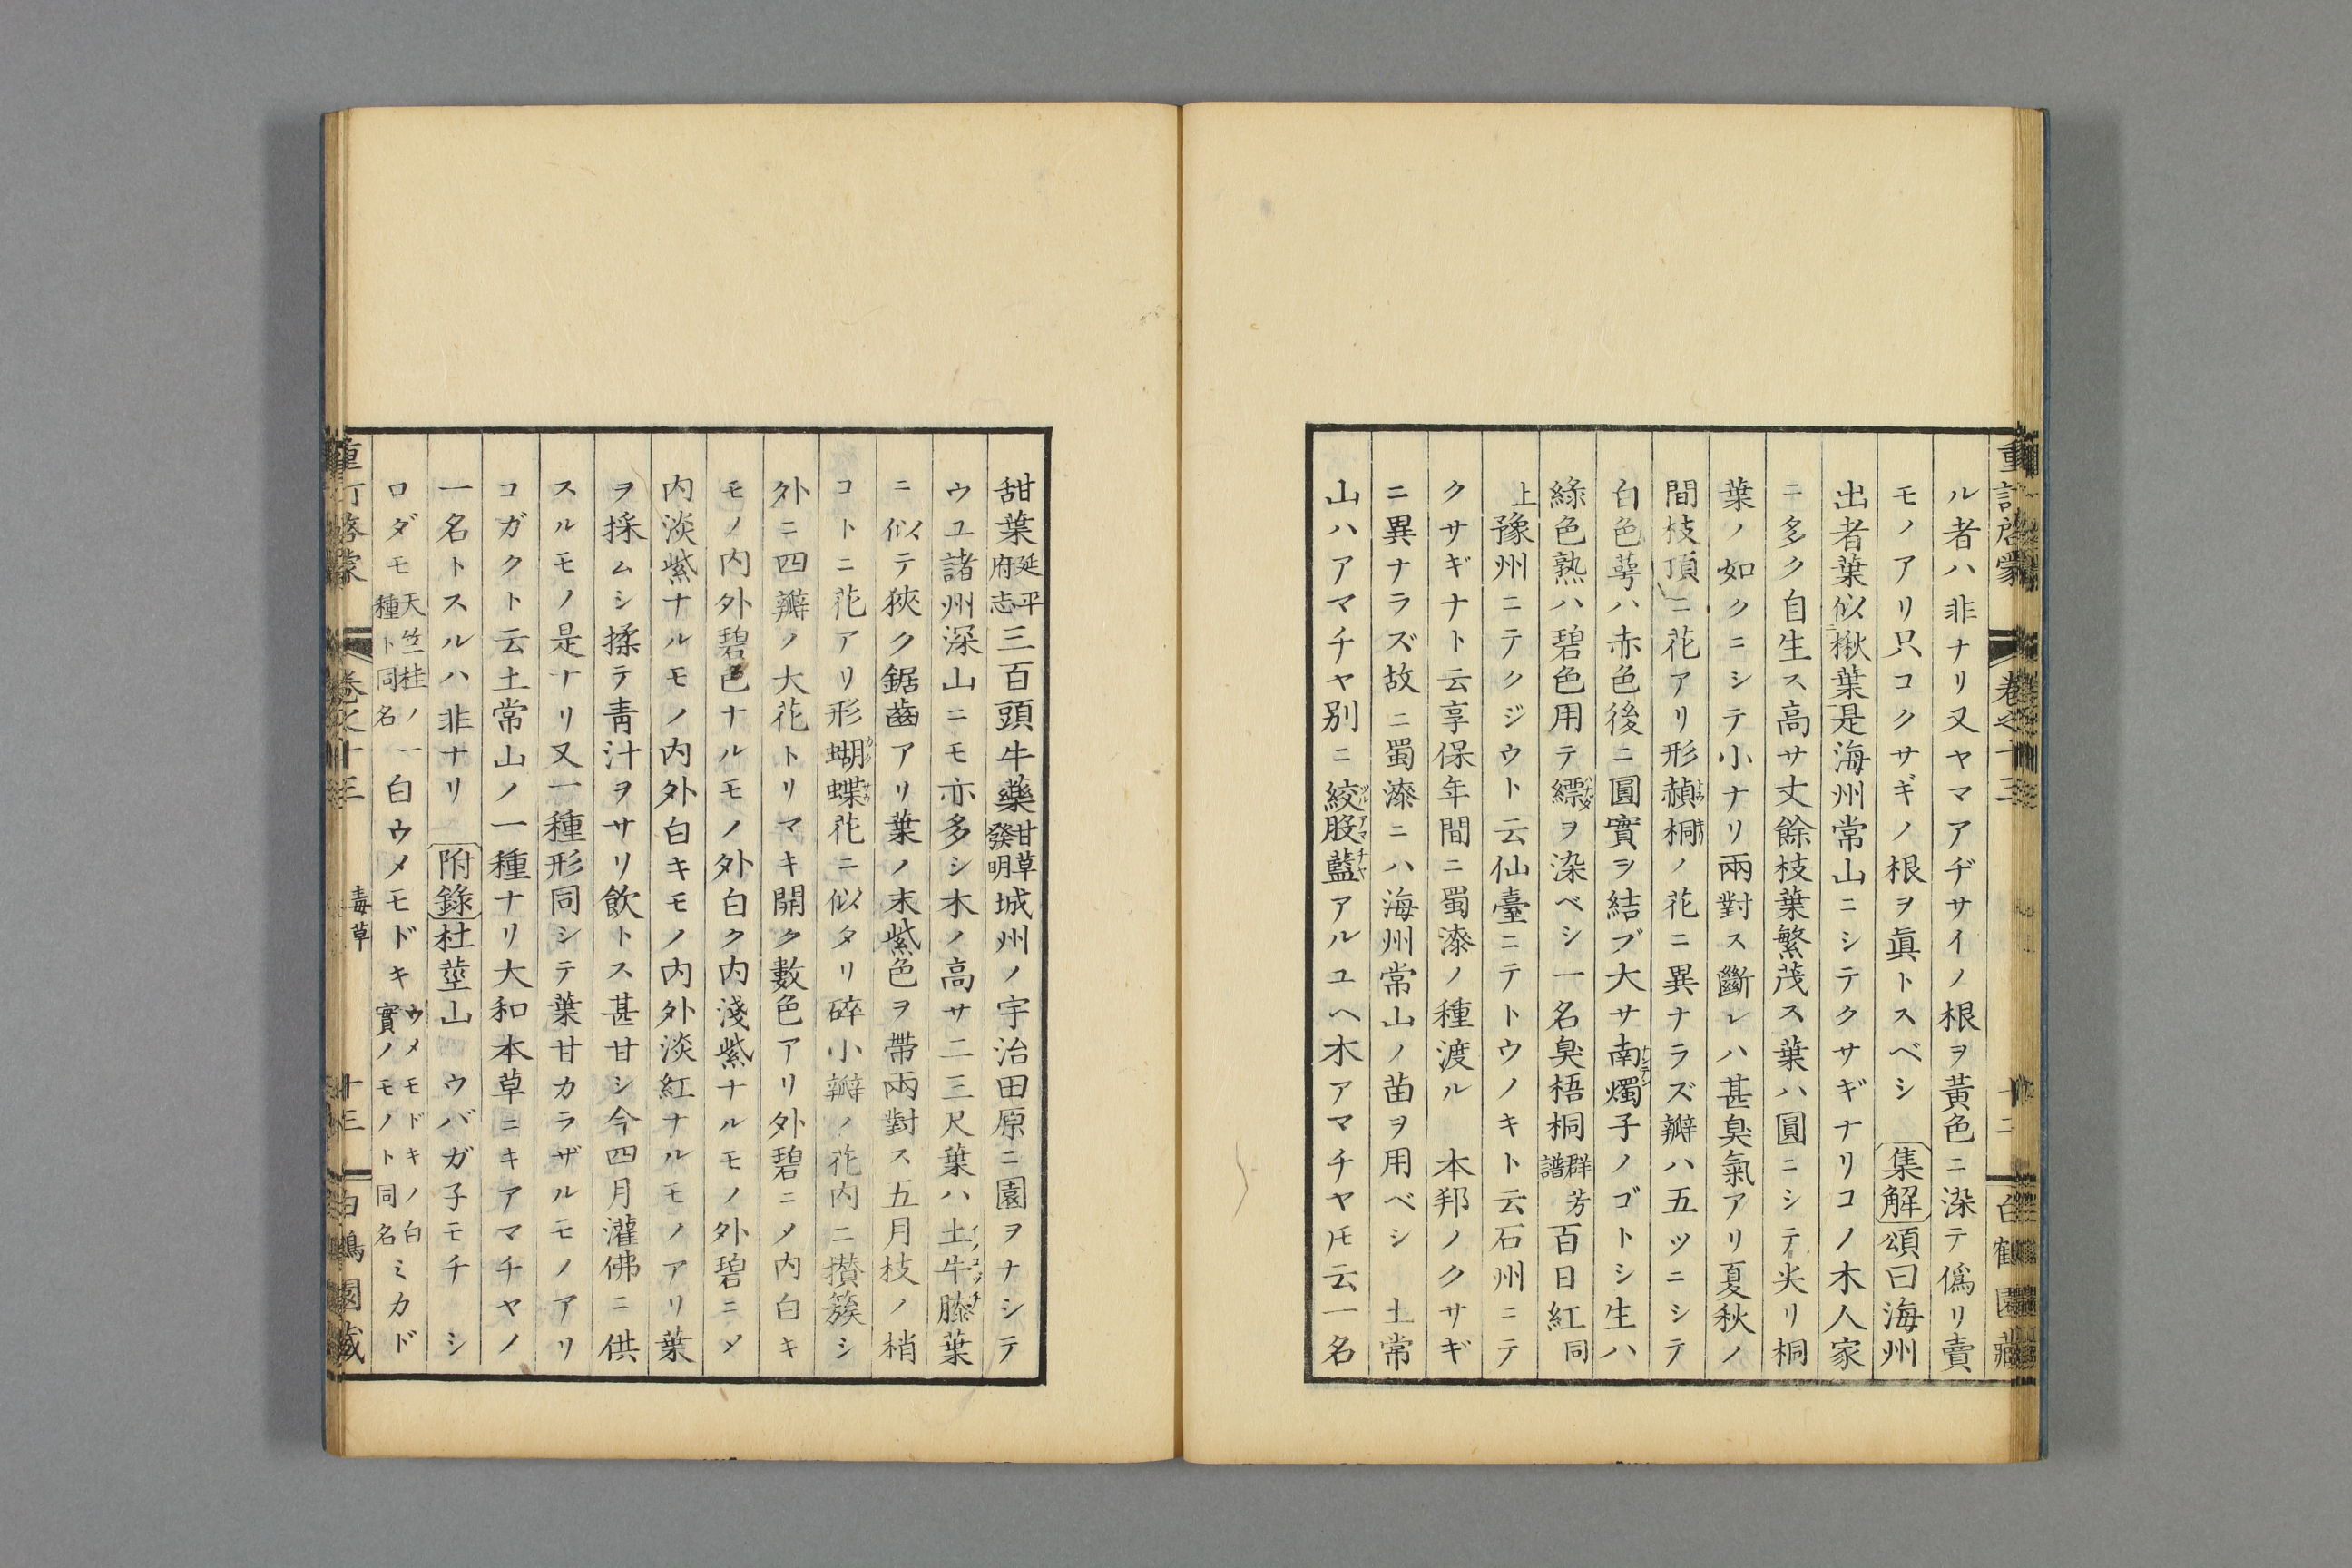 ル者ハ非ナリ又ヤマアヂサイノ根ヲ黃色ニ染テ僞リ賣
モノアリ只コクサギノ根ヲ眞トスベシ 集解頌曰海州
出者葉似楸葉是海州常山ニシテクサギナリコノ木人家
ニ多ク自生ス高サ丈餘枝葉繁茂ス葉ハ圓ニシテ尖リ桐
葉ノ如クニシテ小ナリ兩對ス斷レハ甚臭氣アリ夏秋ノ
間枝頂ニ花アリ形赬桐ノ花ニ異ナラズ瓣ハ五ツニシテ
白色萼ハ赤色後ニ圓實ヲ結ブ大サ南燭子ナンテンノゴトシ生ハ
綠色熟ハ碧色用テ縹ハナダヲ染ベシ一名臭梧桐群芳譜百日紅同
上豫州ニテクジウト云仙臺ニテトウノキト云石州ニテ
クサギナト云享保年間ニ蜀漆ノ種渡ル 本邦ノクサギ
ニ異ナラズ故ニ蜀漆ニハ海州常山ノ苗ヲ用ベシ 土常
山ハアマチヤ別ニ絞股藍ツルアマチヤアルユヘ木アマチヤトモ云一名
甜葉延平府志三百頭牛藥甘草發明城州ノ宇治田原ニ園ヲナシテ
ウユ諸州深山ニモ亦多シ木ノ高サ二三尺葉ハ土牛膝イノコヅチ葉
ニ似テ狹ク鋸齒アリ葉ノ末紫色ヲ帶兩對ス五月枝ノ梢
コトニ花アリ形蝴蝶花ニ似タリ碎小瓣ノ花内ニ攅簇シ
外ニ四瓣ノ大花トリマキ開ク數色アリ外碧ニメ内白キ
モノ内外碧色ナルモノ外白ク内淺紫ナルモノ外碧ニメ
内淡紫ナルモノ内外白キモノ内外淡紅ナルモノアリ葉
ヲ採ムシ揉テ靑汁ヲサリ飮トス甚甘シ今四月灌佛ニ供
スルモノ是ナリ又一種形同シテ葉甘カラザルモノアリ
コガクト云土常山ノ一種ナリ大和本草ニキアマチヤノ
一名トスルハ非ナリ 附錄杜莖山 ウバガ子モチ シ
ロダモ天竺桂ノ一種ト同名 白ウメモドキウメモドキノ白實ノモノト同名ミカド
重訂啓蒙 卷之十三 毒草 十三